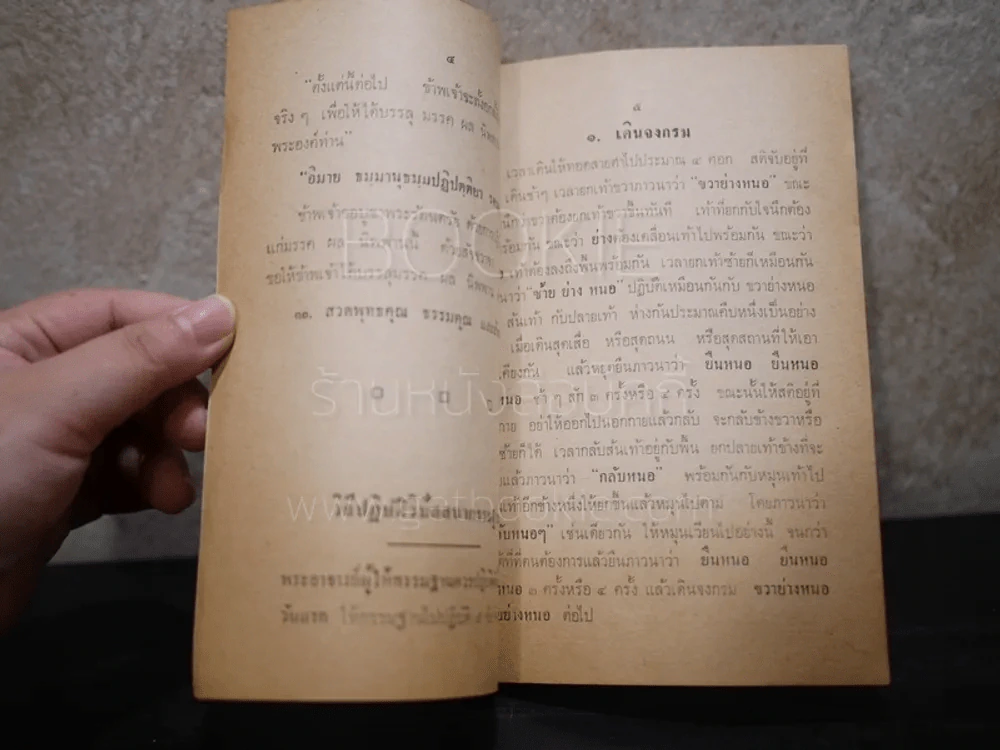 ๔
"ตั้งแต่นี้ต่อไป ข้าพเจ้าจะตั้งอก
จริง ๆ เพื่อให้ได้บรรลุ มรรค ผล
พระองค์ท่าน"
"อิมาย ธมฺมานุธมฺมปฏิปตฺติยา
ข้าพเจ้าขอบูชาพระรัตนตรัย ด้วยการ
แก่มรรค ผล นิพพานนี้ ด้วยสัจวาจา
ขอให้ข้าพเจ้าได้บรรลุมรรค ผล นิพพาน
๑๑. สวดพุทธคุณ ธรรมคุณ
วิธีปฏิบัติ
พระอาจารย์ผู้ให้กรรมฐานควรปฏิบัติ
วันแรก ให้กรรมฐานไปปฏิบัติ
๕
๑. เดินจงกรม
เวลาเดินให้ทอดสายตาไปประมาณ ๔ ศอก สติจับอยู่ที่
เดินช้าๆ เวลายกเท้าขวาภาวนาว่า "ขวาย่างหนอ" ขณะ
นึกว่าขวาต้องยกเท้าขวาขึ้นทันที เท้าที่ยกกับใจนึกต้อง
พร้อมกัน ขณะว่า ย่างต้องเคลื่อนเท้าไปพร้อมกัน ขณะว่า
เท้าต้องลงถึงพื้นพร้อมกัน เวลายกเท้าซ้ายก็เหมือนกัน
นาว่า "ซ้าย ย่าง หนอ" ปฏิบัติเหมือนกันกับ ขวาย่างหนอ
ส้นเท้า กับปลายเท้า ห่างกันประมาณคืบหนึ่งเป็นอย่าง
เมื่อเดินสุดเสื่อ หรือสุดถนน หรือสุดสถานที่ให้เอา
เคียงกัน แล้วหยุดยืนภาวนาว่า ยืนหนอ ยืนหนอ
หนอ ช้า ๆ สัก ๓ ครั้งหรือ ๔ ครั้ง ขณะนั้นให้สติอยู่ที่
กาย อย่าให้ออกไปนอกกายแล้วกลับ จะกลับข้างขวาหรือ
ซ้ายก็ได้ เวลากลับส้นเท้าอยู่กับพื้น ยกปลายเท้าข้างที่จะ
แล้วภาวนาว่า "กลับหนอ" พร้อมกันกับหมุนเท้าไป
เท้าอีกข้างหนึ่งให้ยกขึ้นแล้วหมุนไปตาม โดยภาวนาว่า
ลับหนอๆ" เช่นเดียวกัน ให้หมุนเวียนไปอย่างนี้ จนกว่า
ได้ที่ที่ตนต้องการแล้วยืนภาวนาว่า ยืนหนอ ยืนหนอ
หนอ ๓ ครั้งหรือ ๔ ครั้ง แล้วเดินจงกรม ขวาย่างหนอ
ย่างหนอ ต่อไป